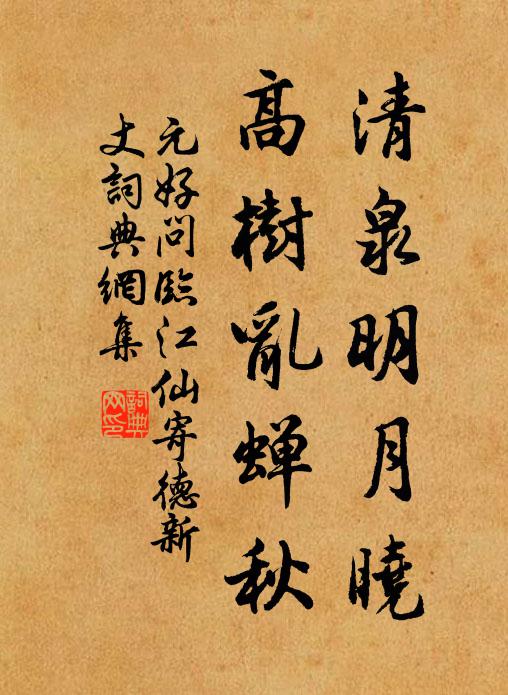 清泉明月曉
高樹亂蟬秋
元好問臨江仙寄德新
文詞典網集
詞典
网印